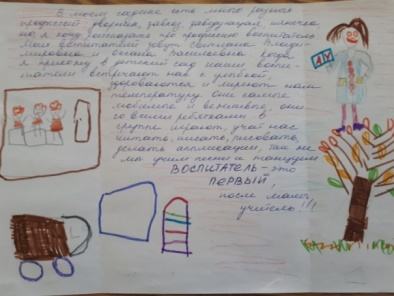 В моём садике есть много разных
профессий дворник, завхоз, заведующая
но я хочу рассказать про профессию воспитатель
Моих воспитателей зовут Светлана Влади-
мировна и Оксана Васильевна. Когда
я прихожу в детский сад наши воспи-
татели встречают нас с улыбкой,
здороваются и меряют нам
температуру. Они самые
любимые и вежливые, они
со всеми ребятками в
группе играют, учат нас
читать, писать, рисовать,
делать аппликации, так же
мы учим песни и танцуем
ВОСПИТАТЕЛЬ - это
ПЕРВЫЙ,
после мамы,
учитель!!!